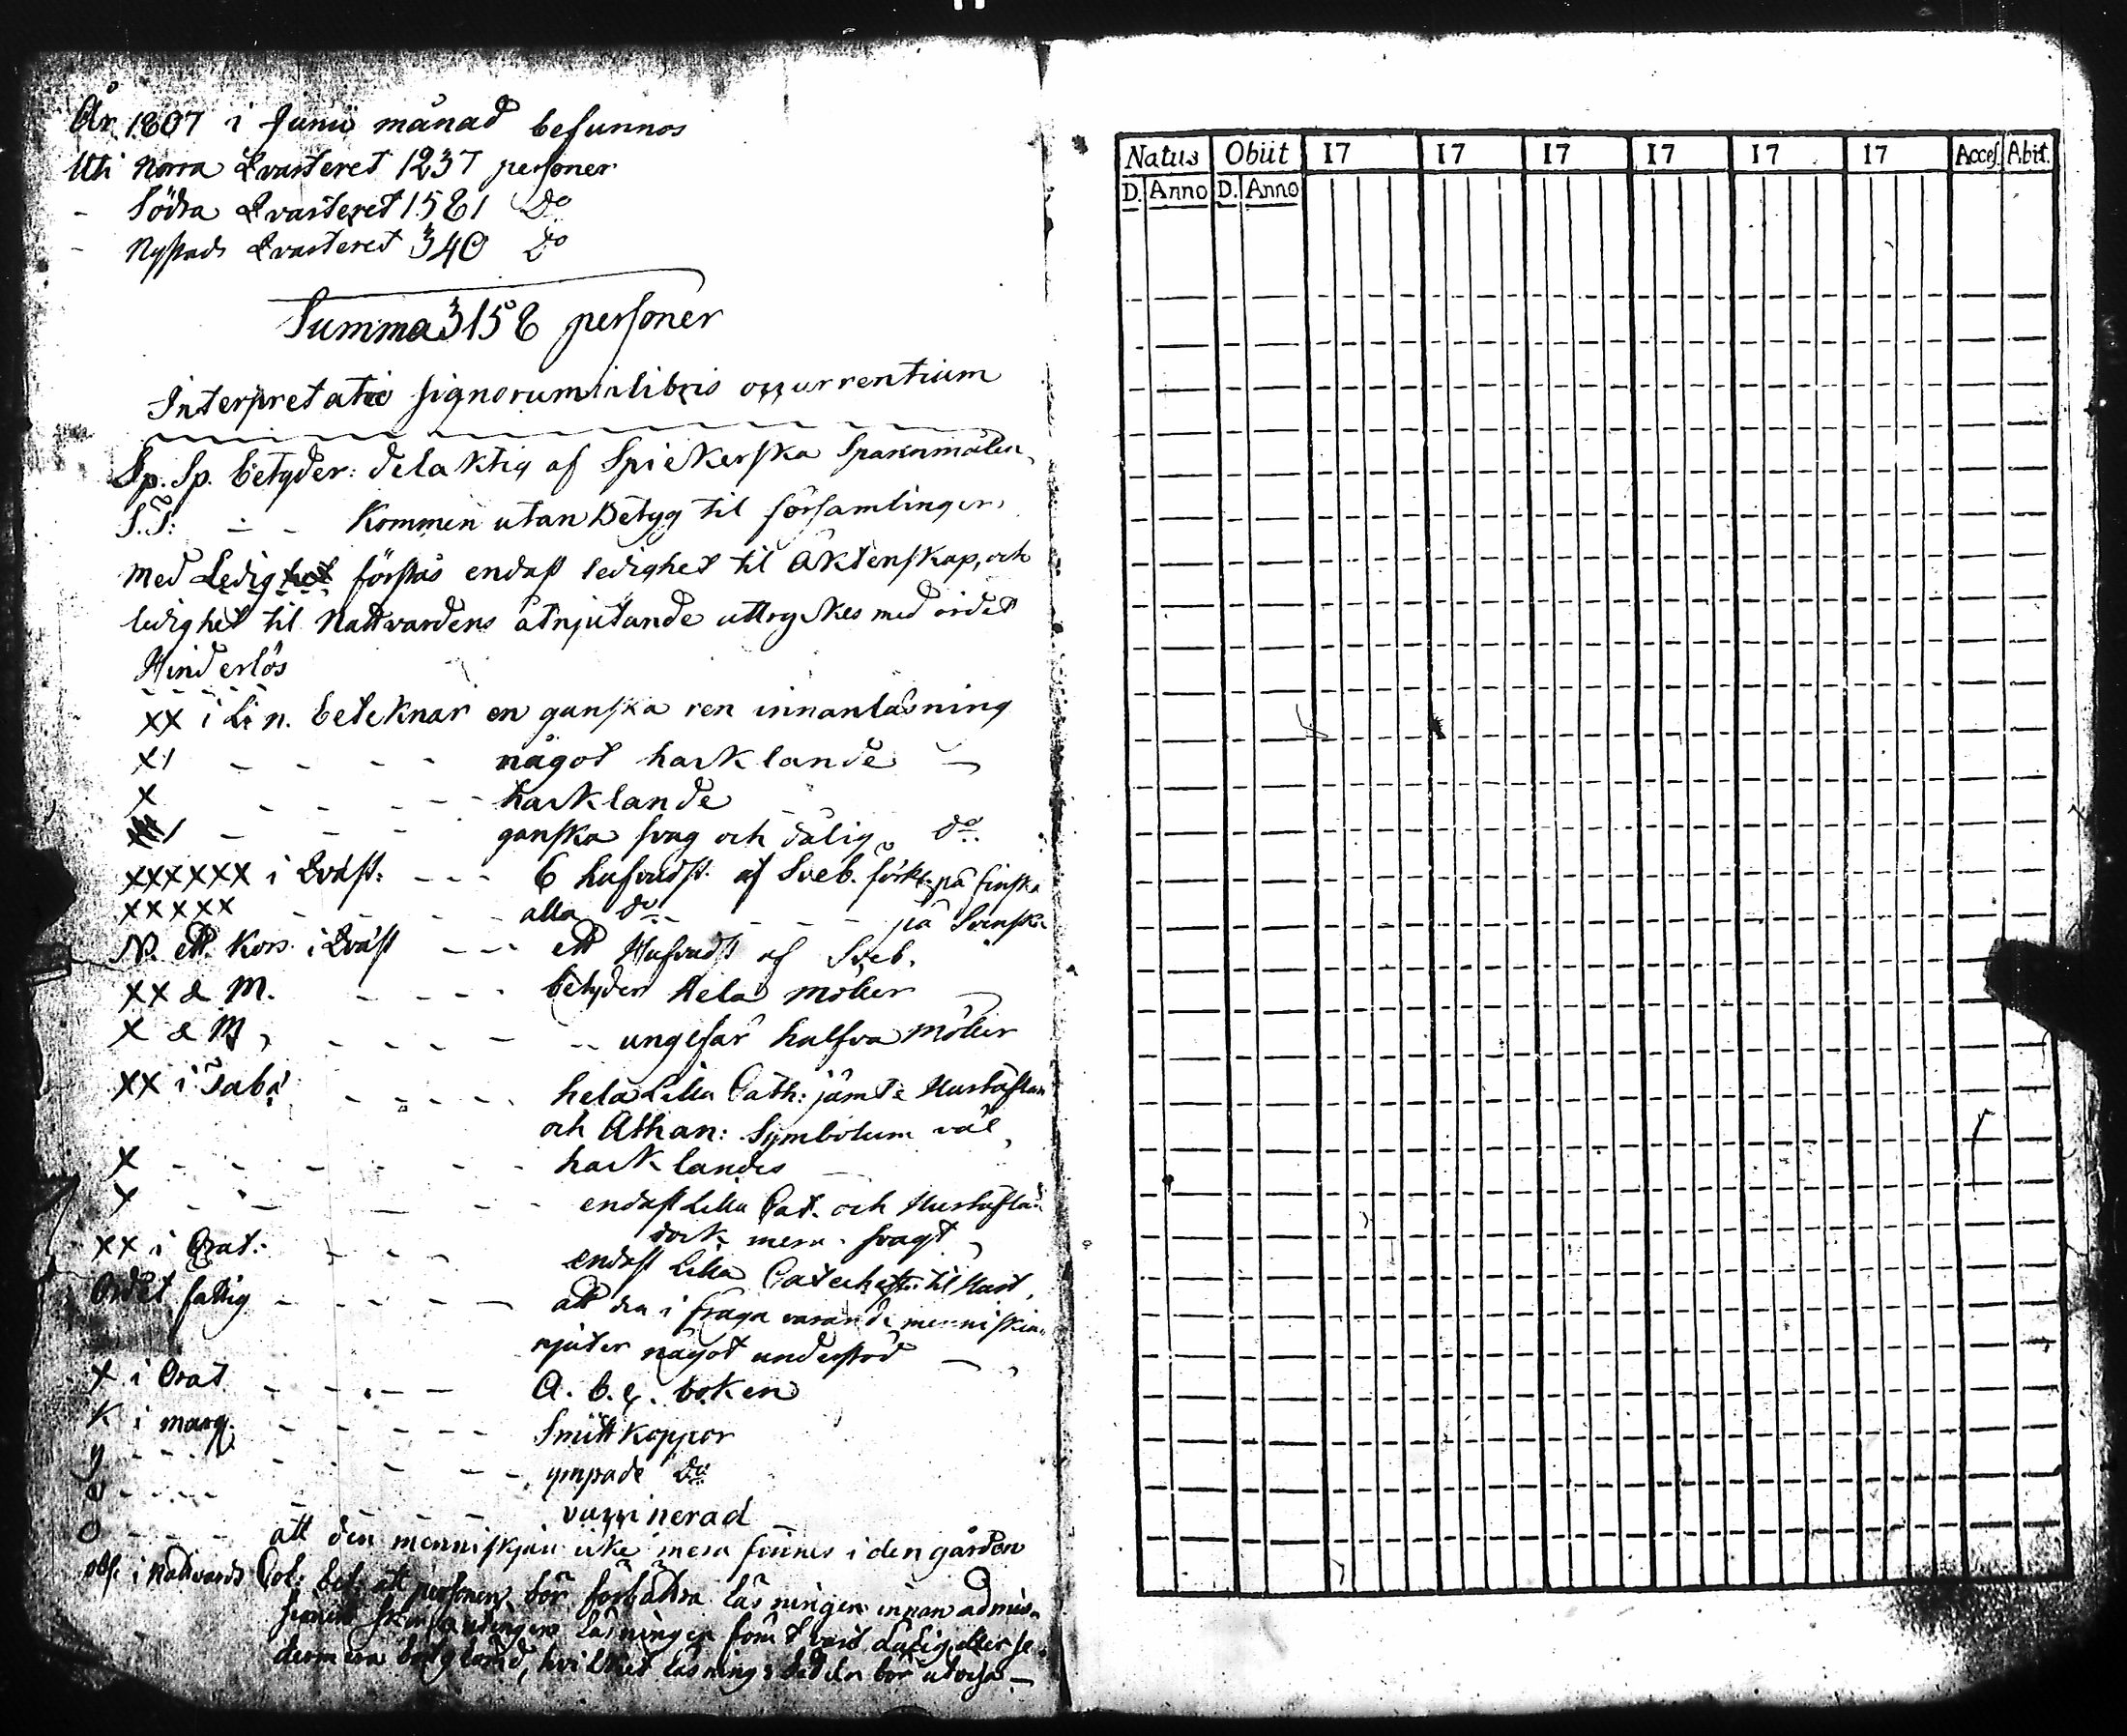 År 1807 i Junii månad befunnos
Uti Norra Qvarteret 1237 personer
- Södra Qvarteret 1581 Do
- Nystads Qvarteret 340 Do
Summa 3158 personer
Interpretatio signorum in libris occurrentium
Sp. Sp. betyder: delaktig af Spiekerska Spannmålen
S.T: - - Kommen utan Betyg til församlingen
Med Ledighet förstås endast ledighet til Äktenskap, och
ledighet til Nattvardens åtnjutande uttryckes med ordet
Hinderlös
XX i Lin. beteknar en ganska ren innanläsning
X1 - - - - något hacklande
X - - - - hacklande
1 - - - ganska svag och dålig do
XXXXXX i Qväst: - - - 6 hufvudst. af Sveb. förkl. på finska
XXXXX - - - - alla do - - - på Svenska
N. ett Kors i Qväst - - - ett Hufvudst af Sveb.
XX a M. - - - - betyder hela Möller
X a M, - - - - ungefär halfva Möller
XX i Tab: - - - - hela Lilla Cath: jämte Hustaflan
och Athan: Symbolum väl
X - - - - - - hacklandes
X - - - - - endast Lilla Cat. och Hustaflan
dock mera svagt
XX i Orat: - - - endast Lilla Catechesen til Hust.
Ordet fattig - - - - att den i fråga varande menniskian
njuter något understöd
X i Orat - - - - A. b. c. boken
K i marg. - - - - - Smittkoppor
y - - - - - - ympade do
v - - - - vaccinerad
O - - - - att den menniskjan icke mera finnes i den gården
obs. i Nattvards Col: bet: att personen bör förbättra läsningen innan admis-
sionen sker, antingen läsningen förut varit dålig eller se-
dermera bortglömd, hvilket läsnings sedeln bör utvisa
Natus Obiit 17 17 17 17 17 17 Acces. Abit.
D. Anno D. Anno